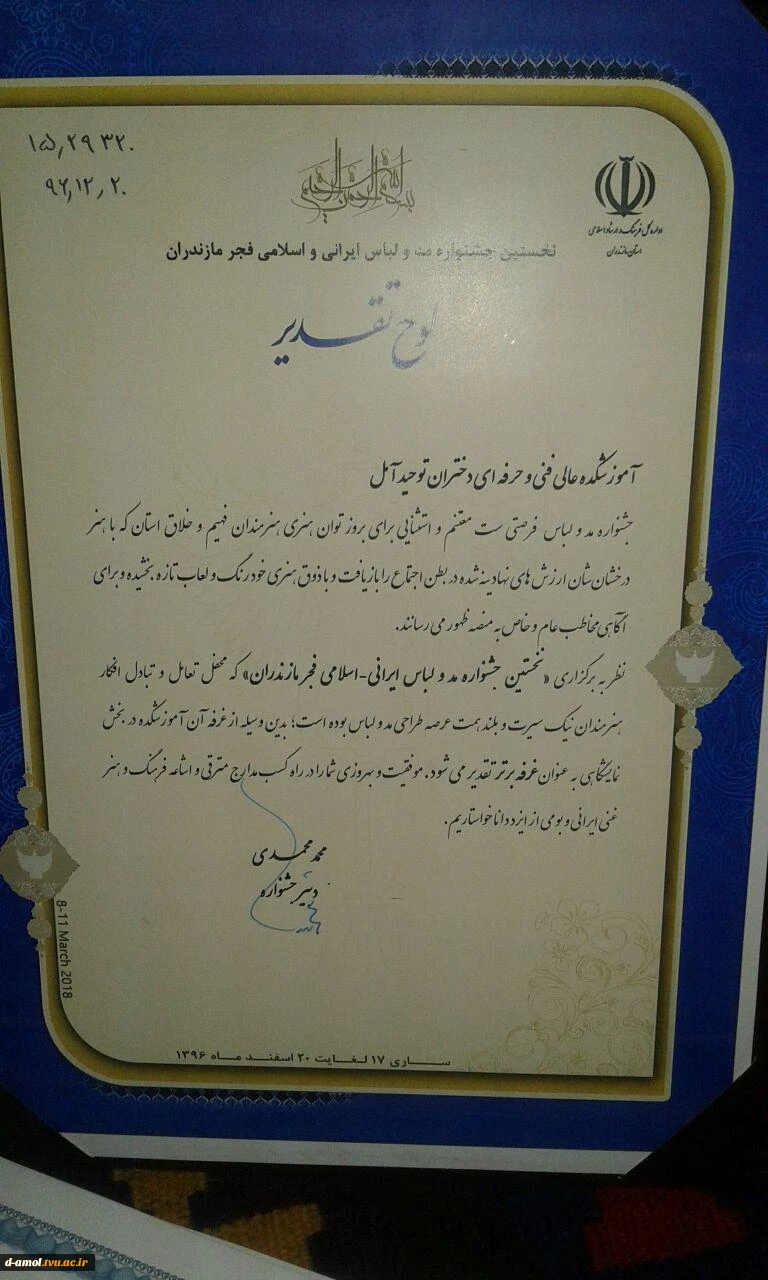 ۱۵٫۲۹۳۲۰
۹۶٫۱۲٫۲۰
بسم الله الرحمن الرحیم
اداره کل فرهنگ و ارشاد اسلامی
استان مازندران
نخستین جشنواره مد و لباس ایرانی و اسلامی فجر مازندران
لوح تقدیر
آموزشکده عالی فنی و حرفه ای دختران توحید آمل
جشنواره مد و لباس فرصتی ست مغتنم و استثنایی برای بروز توان هنری هنرمندان فهیم و خلاق استان که با هنر
درخشان شان ارزش های نهادینه شده در بطن اجتماع را بازیافت و با ذوق هنری خود رنگ و لعاب تازه بخشیده و برای
آگاهی مخاطب عام و خاص به منصه ظهور می رسانند.
نظر به برگزاری «نخستین جشنواره مد و لباس ایرانی-اسلامی فجر مازندران» که محفل تعامل و تبادل افکار
هنرمندان نیک سیرت و بلند همت عرصه طراحی مد و لباس بوده است؛ بدین وسیله از غرفه آن آموزشکده در بخش
نمایشگاهی به عنوان غرفه برتر تقدیر می شود. موفقیت و بهروزی شما را در راه کسب مدارج مترقی و اشاعه فرهنگ و هنر
غنی ایرانی و بومی از ایزد دانا خواستاریم.
محمد محمدی
دبیر جشنواره
8-11 March 2018
ساری ۱۷ لغایت ۲۰ اسفند ماه ۱۳۹۶
d-amol.tvu.ac.ir